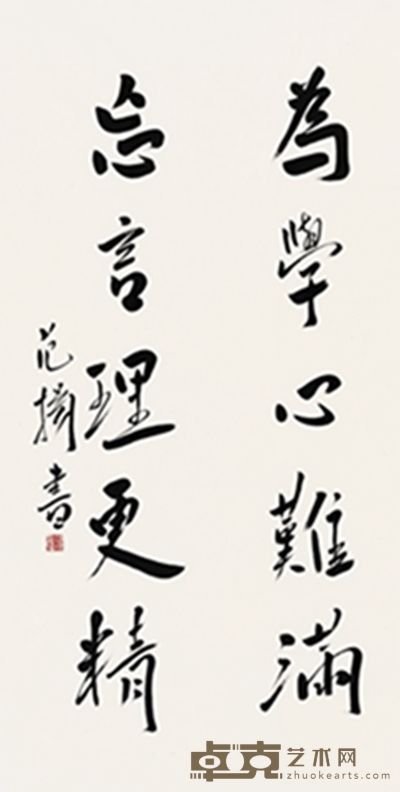 為學心難滿
忘言理更精
范擴書
卓克艺术网
zhuokearts.com